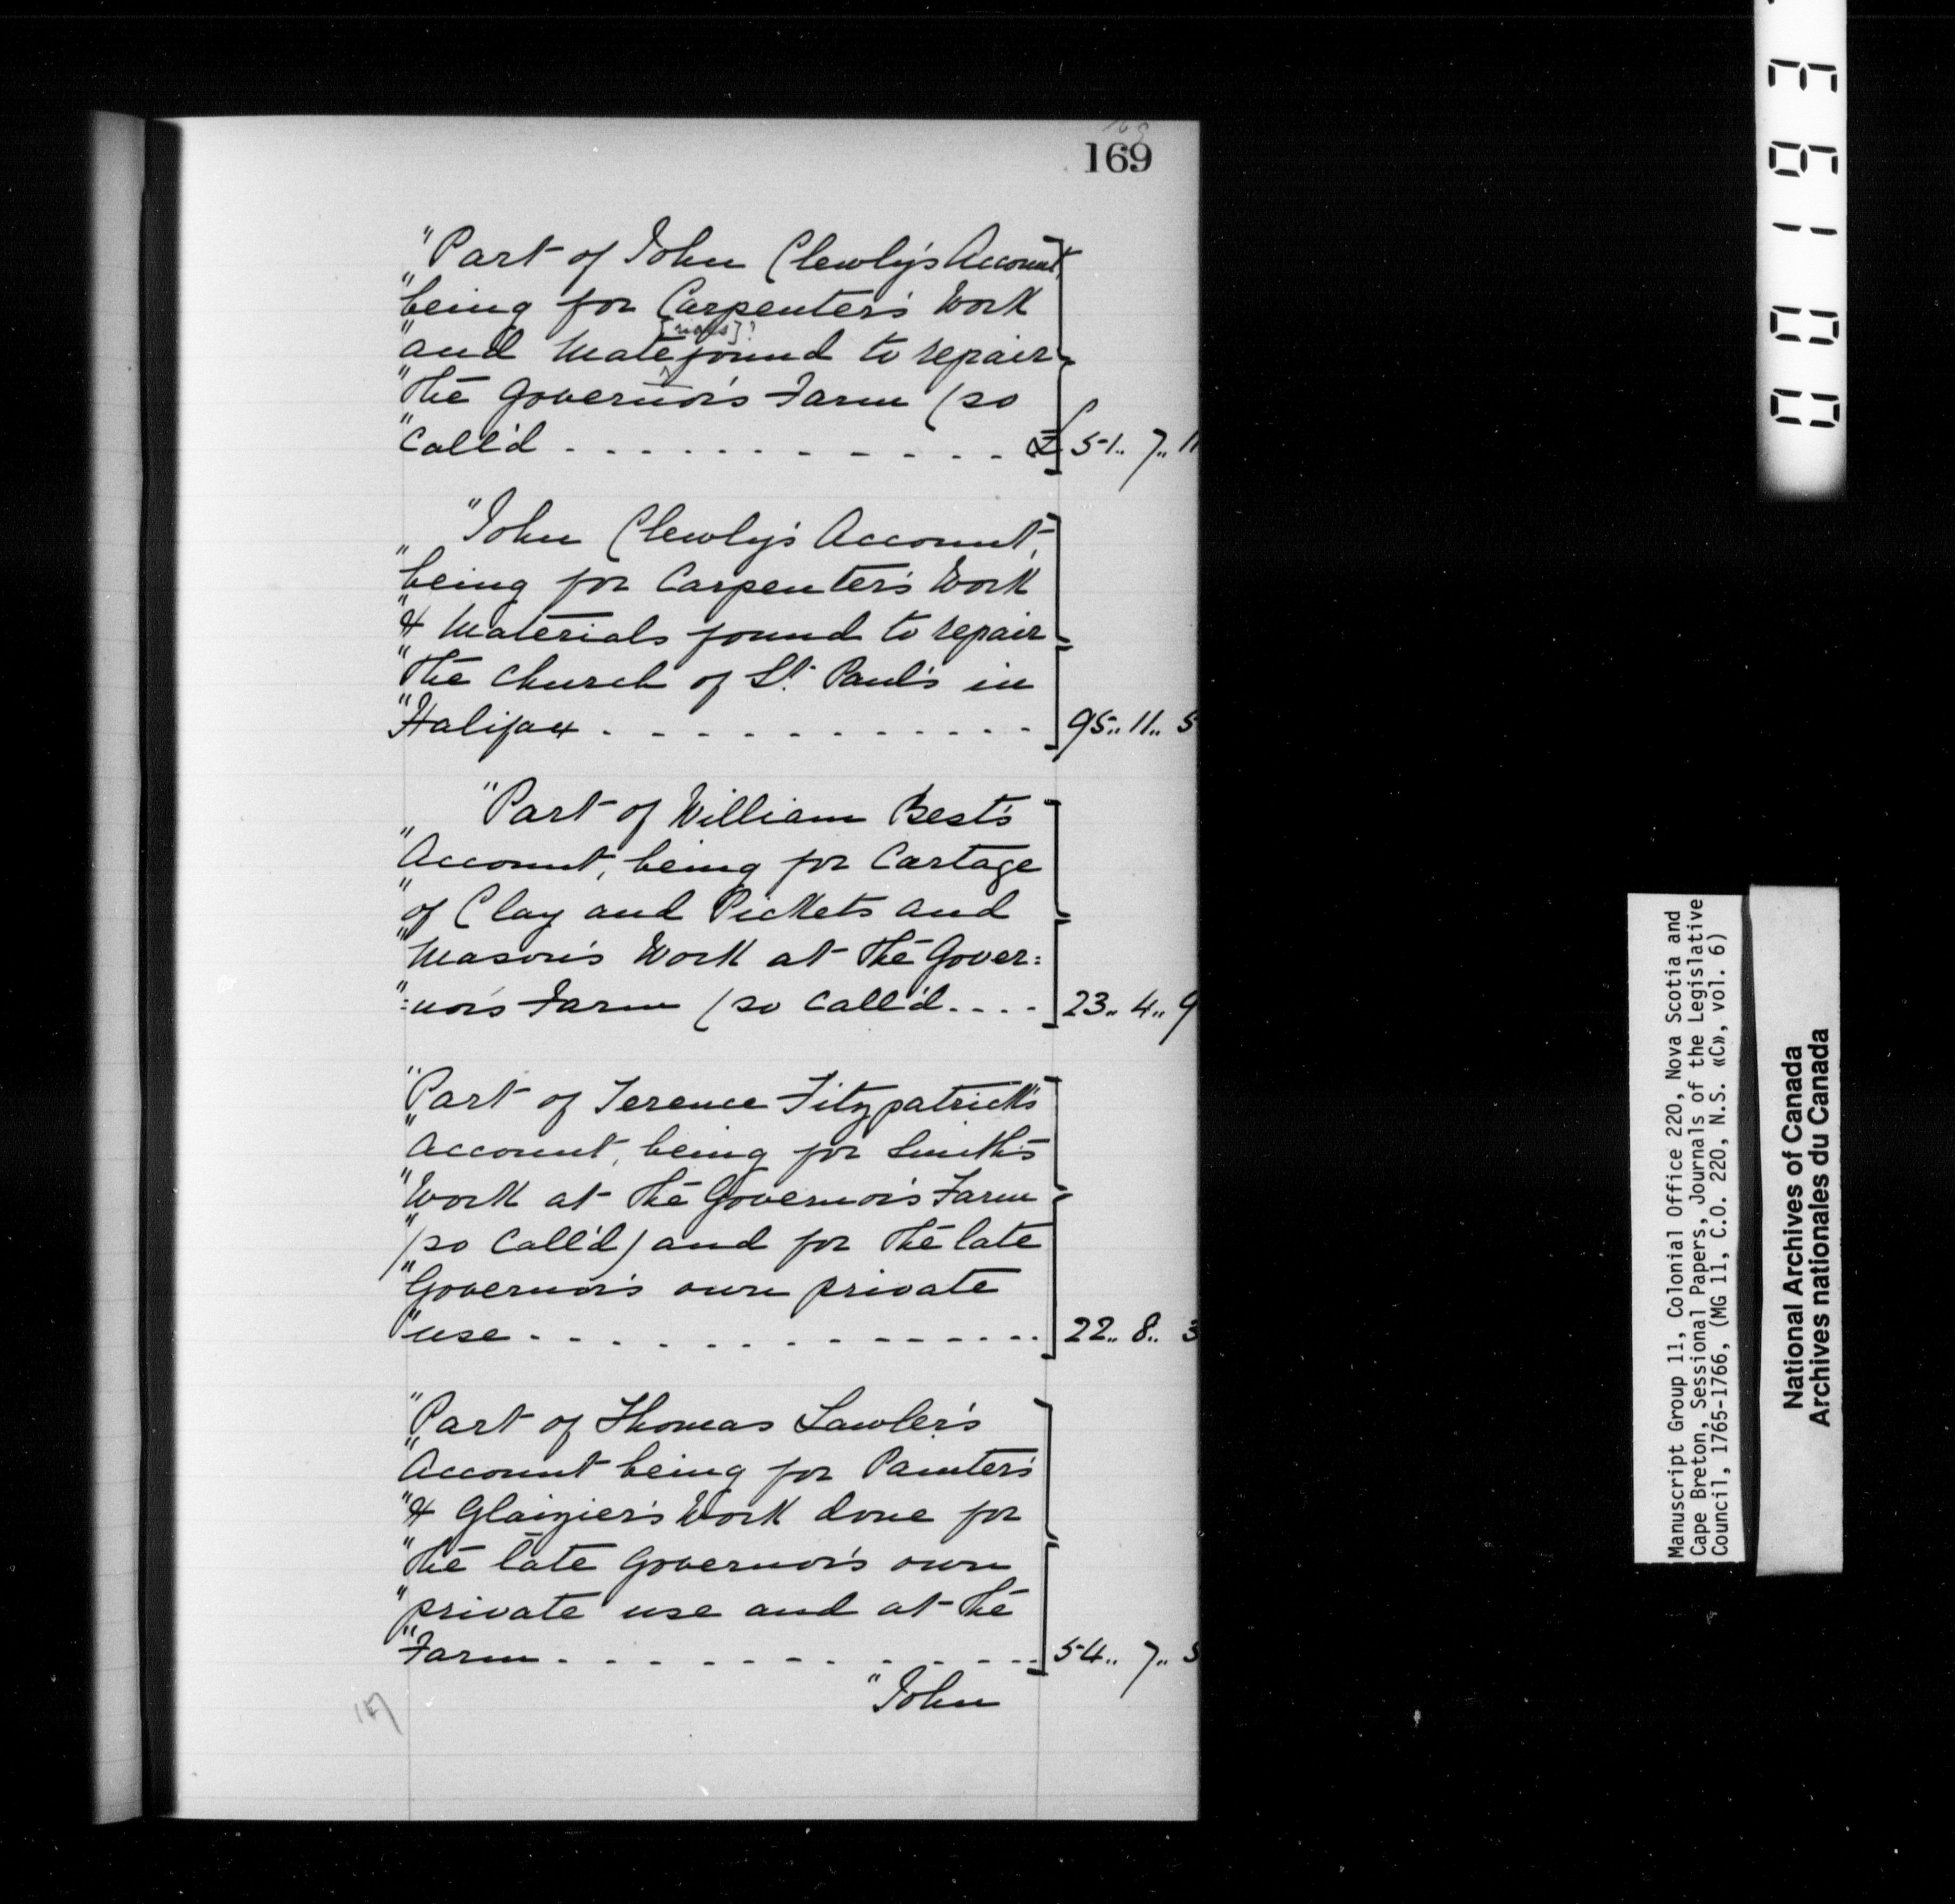 169
169
"Part of John Clewly's Account,
"being for Carpenter's Work
[rials]?
"and Mate found to repair
"the Governor's Farm (so
"Call'd . . . . . . . . . . . . £ 51.. 7.. 11
"John Clewly's Account,
"being for Carpenter's Work
"& Materials found to repair
"the Church of St. Paul's in
"Halifax . . . . . . . . . . . . 95.. 11.. 5
"Part of William Best's
"Account, being for Cartage
"of Clay and Pickets and
"Mason's Work at the Gover=
"=nor's Farm (so call'd . . . . 23.. 4.. 9
"Part of Terence Fitzpatrick's
"Account, being for Smith's
"Work at the Governor's Farm
"(so Call'd) and for the late
"Governor's own private
"use . . . . . . . . . . . . . . 22.. 8.. 3
"Part of Thomas Lawler's
"Account being for Painter's
"& Glaizier's Work done for
"the late Governor's own
"private use and at the
"Farm . . . . . . . . . . . . . 54.. 7.. 5
"John
Manuscript Group 11, Colonial Office 220, Nova Scotia and
Cape Breton, Sessional Papers, Journals of the Legislative
Council, 1765-1766, (MG 11, C.O. 220, N.S. «C», vol. 6)
National Archives of Canada
Archives nationales du Canada